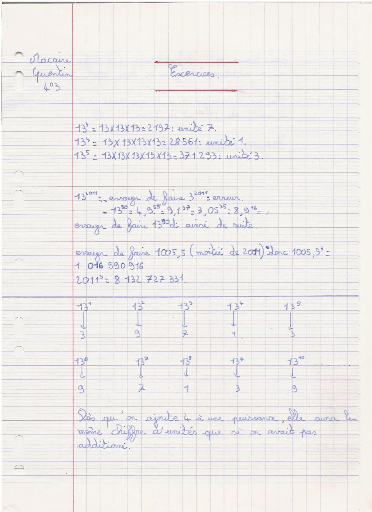 Macaire
Quentin
4°3
Exercices.
13³ = 13X13X13 = 2197 : unité 7.
13⁴ = 13X13X13X13 = 28561 : unité 1.
13⁵ = 13X13X13X13X13 = 371293 : unité 3.
13²⁰¹¹ = essayer de faire 3²⁰¹¹ = erreur
essayer de faire ainsi de suite
essayer de faire 1005,5 (moitié de 2011) donc 1005,5³ =
1 016 590 916
2011³ = 8 132 727 331.
13¹ 13² 13³ 13⁴ 13⁵
3 9 7 1 3
13⁶ 13⁷ 13⁸ 13⁹ 13¹⁰
9 7 1 3 9
Dès qu'on ajoute 4 à une puissance, elle aura le
même chiffre d'unités que si on avait pas
additioné.